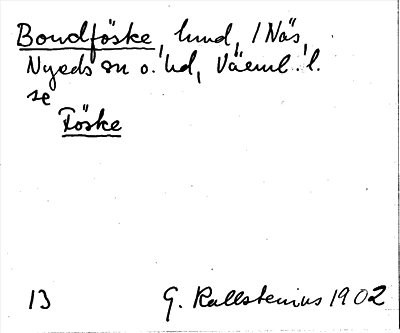 Bondföske, hmd, i Näs,
Nyeds sn o. hd, Värml. l.
se
Föske
13 G. Kallstenius 1902